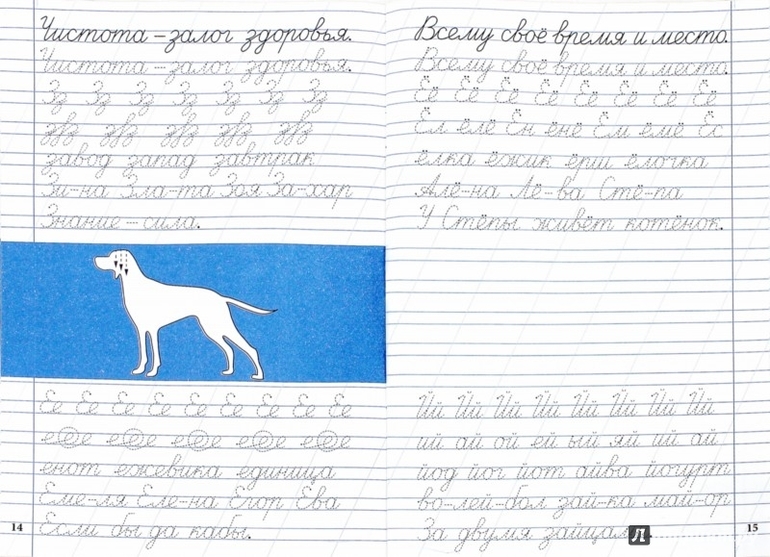 Чистота – залог здоровья.
Чистота – залог здоровья.
Зз Зз Зз Зз Зз Зз Зз
завод запад завтрак
Зи-на Зла-та Зоя За-хар
Знание – сила.
Ее Ее Ее Ее Ее Ее Ее Ее Ее
енот ежевика единица
Еме-ля Еле-на Егор Ева
Если бы да кабы.
14
Всему своё время и место.
Всему своё время и место.
Ёё Ёё Ёё Ёё Ёё Ёё Ёё Ёё
Ёл ёлё Ён ёнё Ём ёмё Ёс
ёлка ёжик ёрш ёлочка
Алё-на Лё-ва Стё-па
У Стёпы живёт котёнок.
Йй Йй Йй Йй Йй Йй Йй Йй
ий ай ой ей ый яй ий ай
йод йог йот айва йогурт
во-лей-бол зай-ка май-ор
За двумя зайцам
Л
15